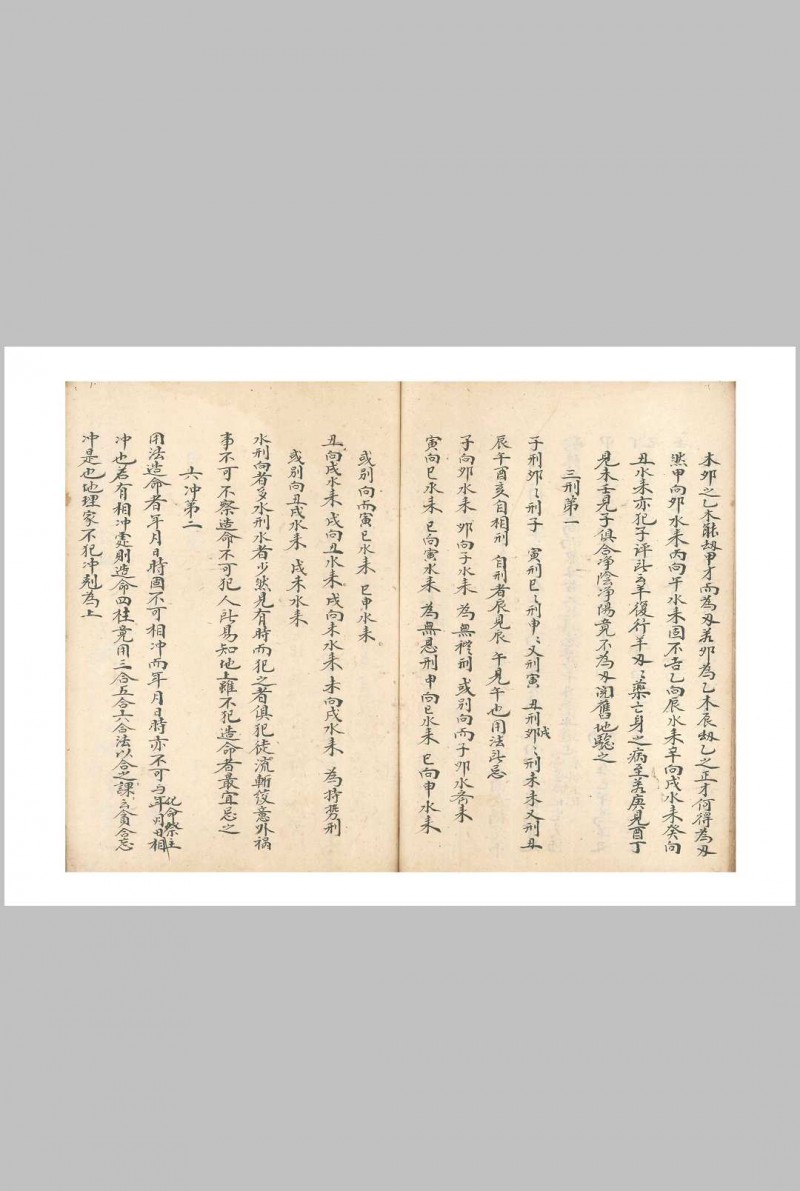 木卯之乙木能刼甲才而為刄若卯為乙木辰刼乙之正才何得為刄
然甲向卯水来丙向午水来固不吉乙向辰水来辛向戌水来癸向
丑水来亦犯子評此為羊復行羊刄〻藥亡身之病至若庚見酉丁
見未壬見子俱合净陰净陽竟不為刄閱舊地驗之
三刑第一
子刑卯〻刑子 寅刑巳〻刑申〻又刑寅 丑刑戌〻刑未未又刑丑
辰午酉亥自相刑 自刑者辰見辰 午見午也用法此忌
子向卯水来 卯向子水来 為無禮刑 或別向而子卯水齐来
寅向巳水来 巳向寅水来 為無恩刑申向巳水来 巳向申水来
或別向而寅巳水来 巳申水来
丑向戌水来 戌向丑水来 戌向未水来 未向戌水来 為持势刑
或別向丑戌水来 戌未水来
水刑向者多水刑水者少然見有時而犯之者俱犯徒流斬絞意外禍
事不可不察造命不可犯人所易知地上雖不犯造命者最宜忌之
六冲第二
用法造命者年月日時固不可相冲而年月日時亦不可与化命祭主年月日相
冲也若有相冲處則造命四柱竟用三合五合六合法以合之課云貪合忘
冲是也地理家不犯冲刑為上